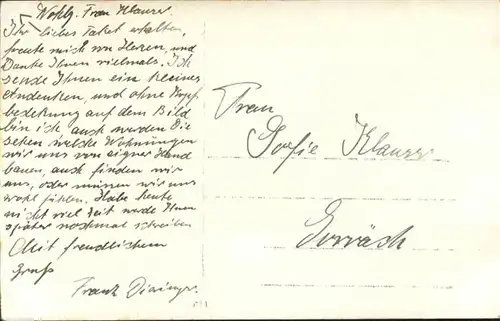 Wohlg. Frau Klauser.
Ihr liebes Paket erhalten,
freute mich von Herzen, und
Danke Ihnen vielmals. Ich
sende Ihnen ein kleines
Andenken, und ohne Kopf
bedekung auf dem Bild
bin ich, auch werden Sie
sehen welche Wohnungen
wir uns von eigner Hand
bauen, auch finden wir
uns, oder müssen wir uns
wohl fühlen. Habe heute
nicht viel Zeit werde Ihnen
später nochmal schreiben
Mit freudlischem
Gruß
Franz
Frau
Sofie Klauser
Lörrach